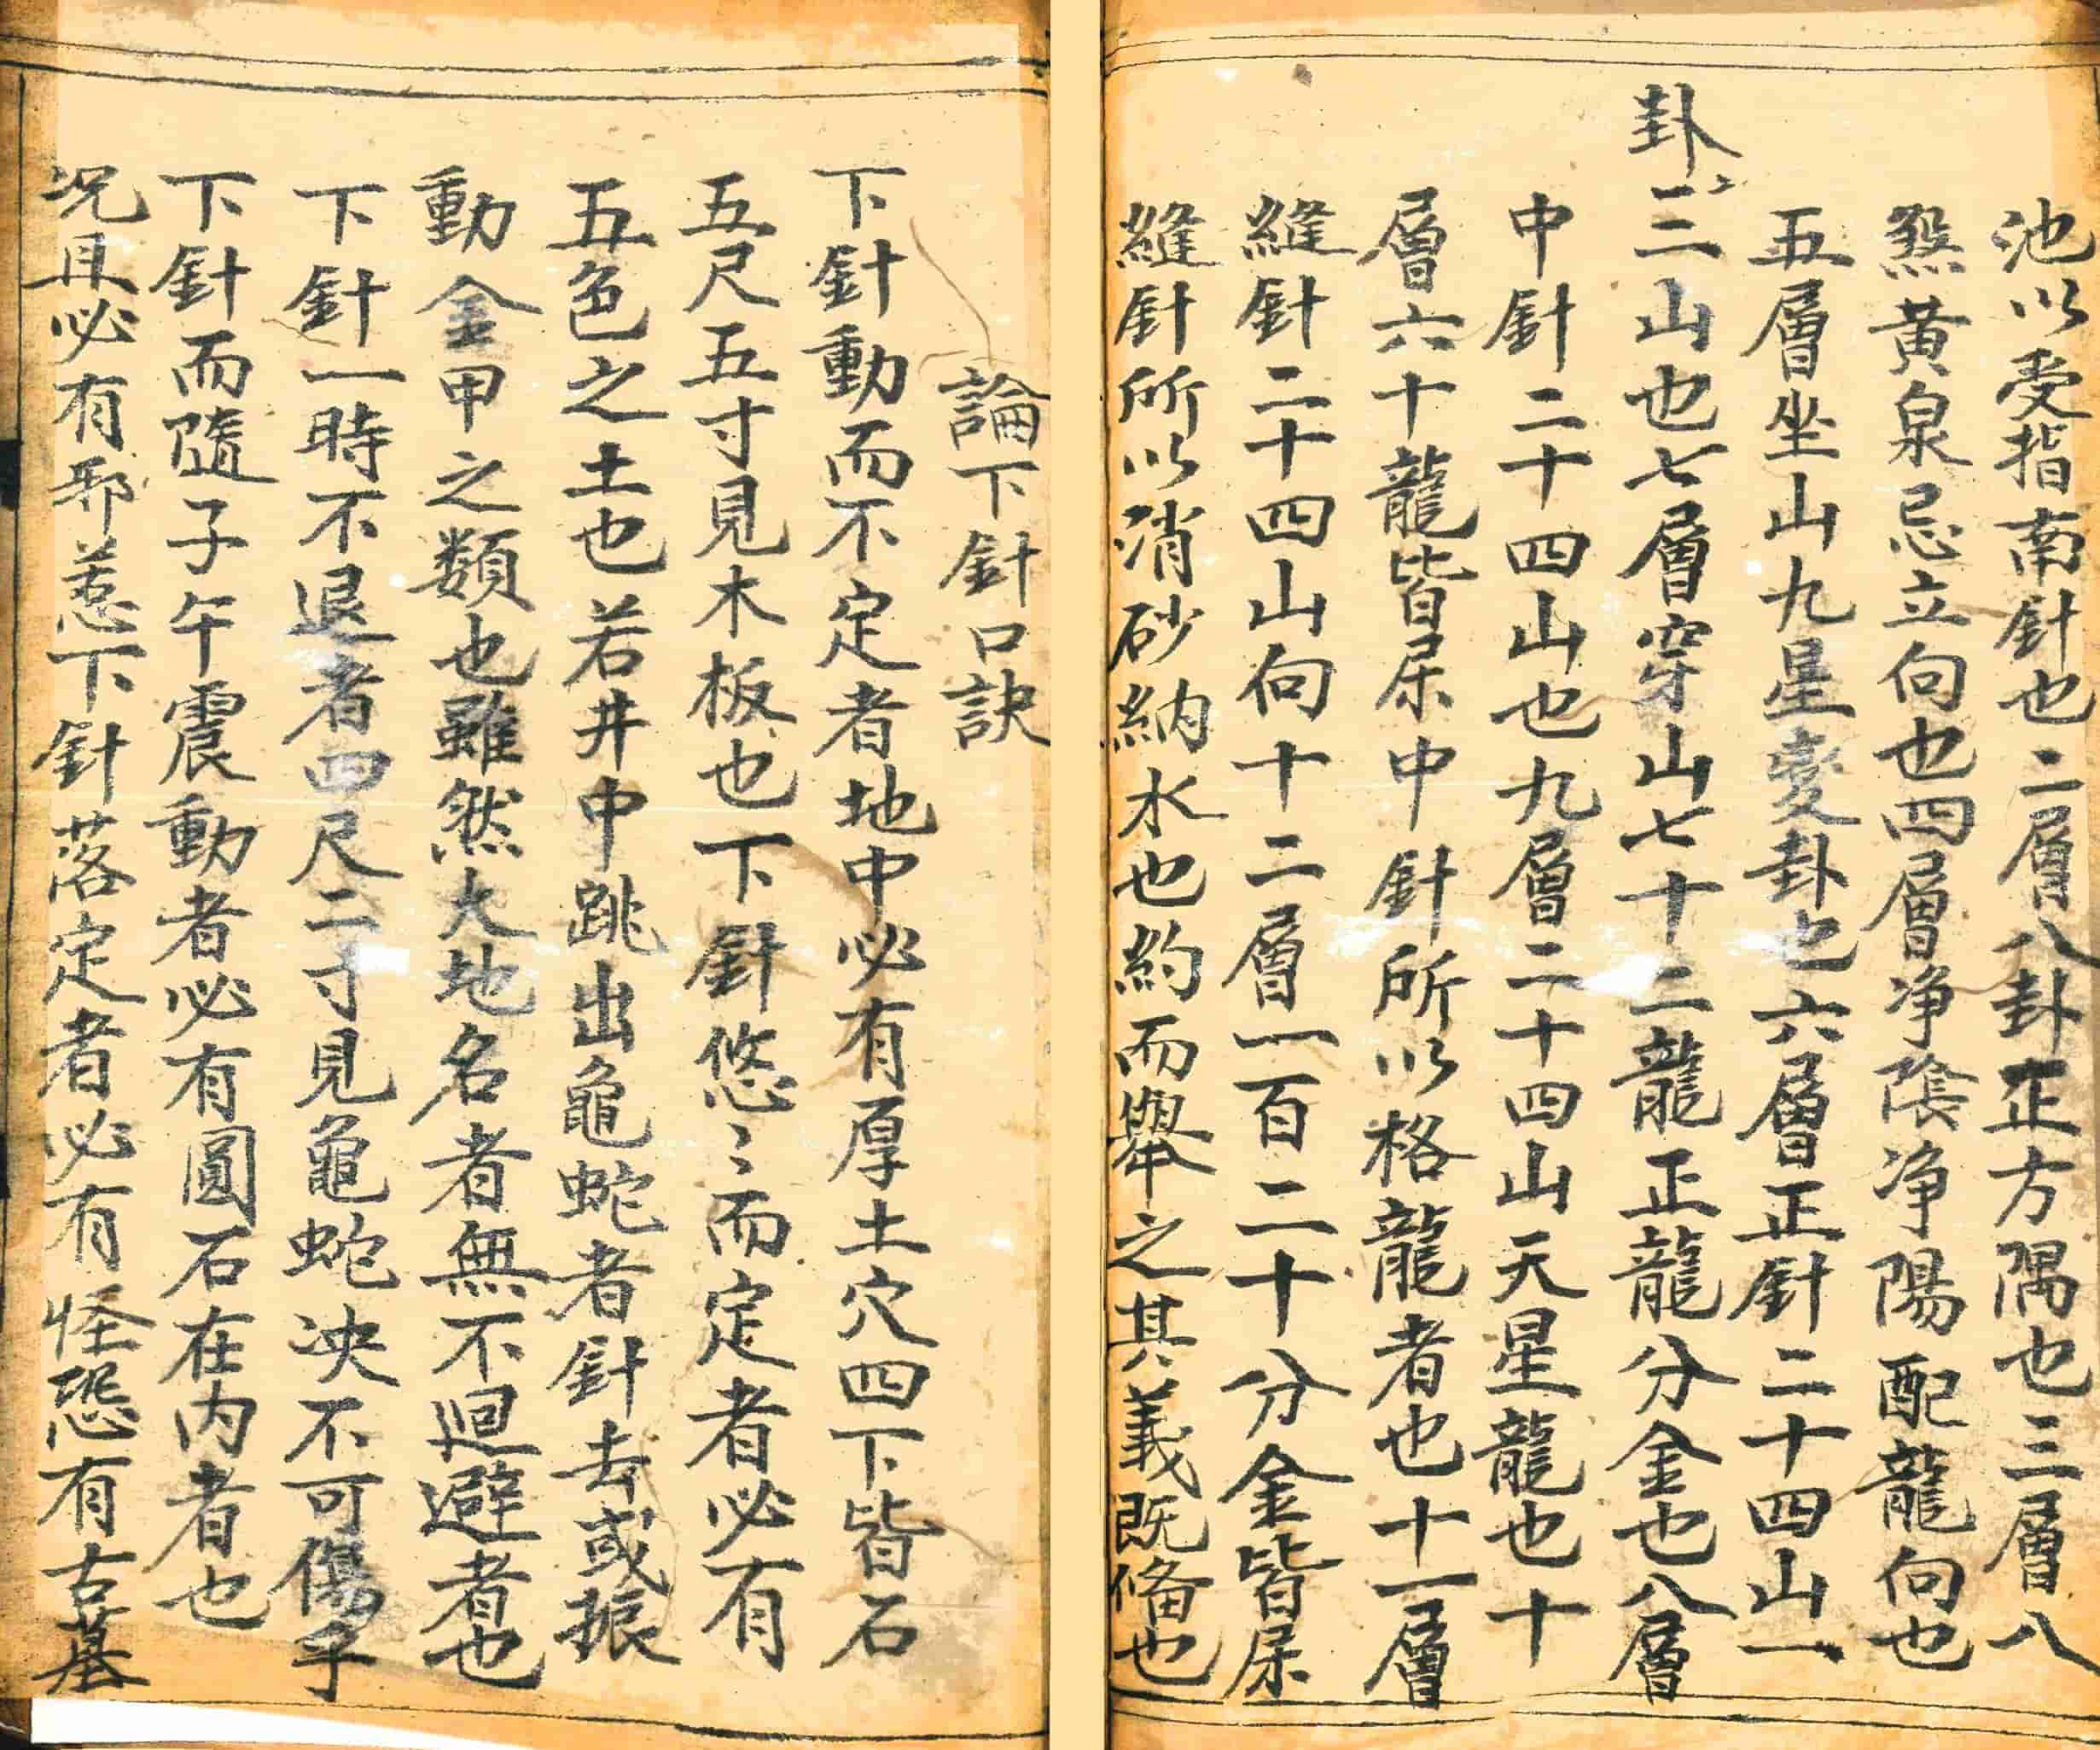 池以受指南針也二層八卦正方隅也三層八
煞黃泉忌立向也四層净陰净陽配龍向也
五層坐山九星變卦也六層正針二十四山一
卦三山也七層穿山七十二龍正龍分金也八層
中針二十四山也九層二十四山天星龍也十
層六十龍皆屬中針所以格龍者也十一層
縫針二十四山向十二層一百二十分金皆屬
縫針所以消砂納水也約而舉之其義既俻也
論下針口訣
下針動而不定者地中必有厚土穴四下皆石
五尺五寸見木板也下針悠〻而定者必有
五色之土也若井中跳出龜蛇者針去或振
動金甲之類也雖然大地名者無不迴避者也
下針一時不退者四尺二寸見龜蛇决不可傷乎
下針而隨子午震動者必有圓石在内者也
况且必有邪惹下針落定者必有怪恐有古墓